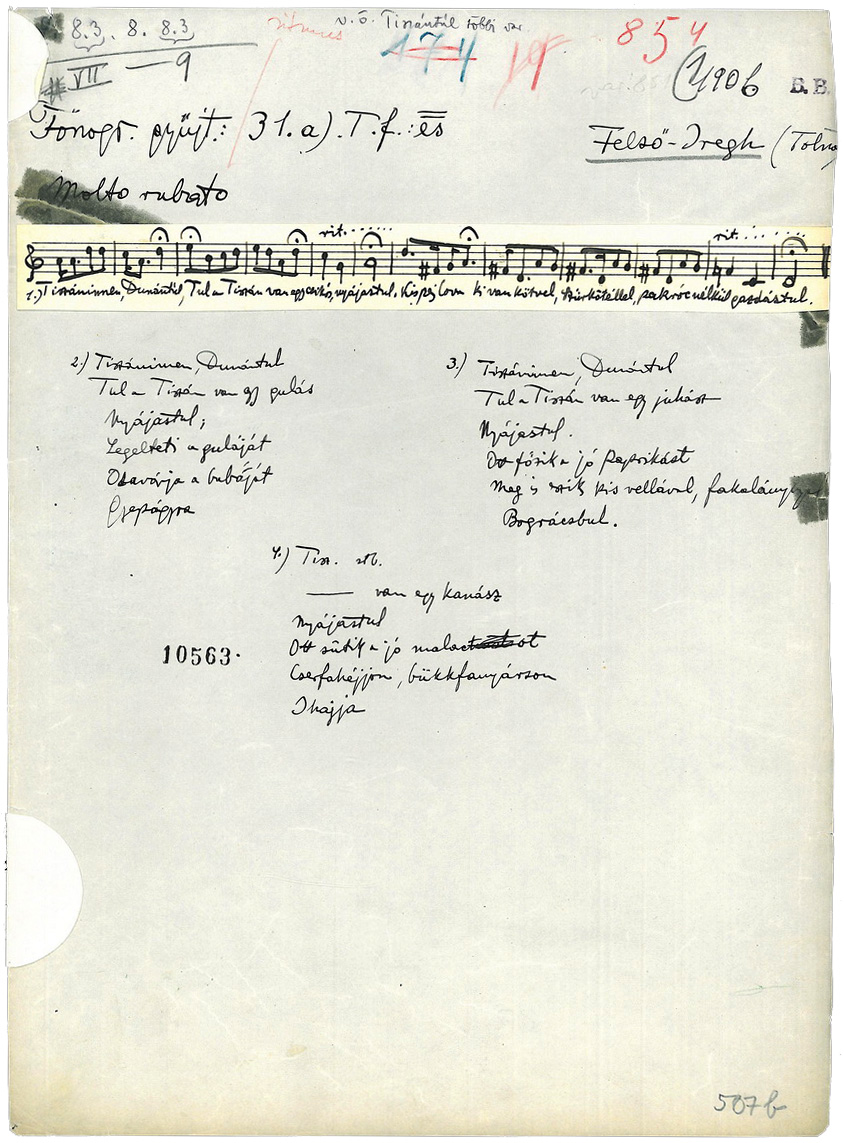 8.3. 8. 8.3
ritmus
v.ö. Tiszántúl többi var.
174
19
854
VII — 9
1906
B.B.
Fonogr. gyűjt.: 31.a). T.f.: és
Felső-Iregh (Tolna
Molto rubato
rit.......
rit.......
1.) Tiszáninnen, Dunántúl, Tul a Tiszán van egy csikós, nyájastul. Kis pej lova ki van kötve, szűrkötéllel, pakróc nélkül gazdástul.
2.) Tiszáninnen, Dunántul
Tul a Tiszán van egy gulás
Nyájastul;
Legelteti a guláját
Odavárja a babáját
Gyepágyra
3.) Tiszáninnen, Dunántul
Tul a Tiszán van egy juhász
Nyájastul.
Ott főzik a jó paprikást
Meg is eszik kis vellával, fakalánnyal
Bográcsbul.
4.) Tisz. stb.
— van egy kanász
Nyájastul
Ott sütik a jó malacot
Cserfahéjjon, bükkfanyárson
Ihajja
10563.
507b